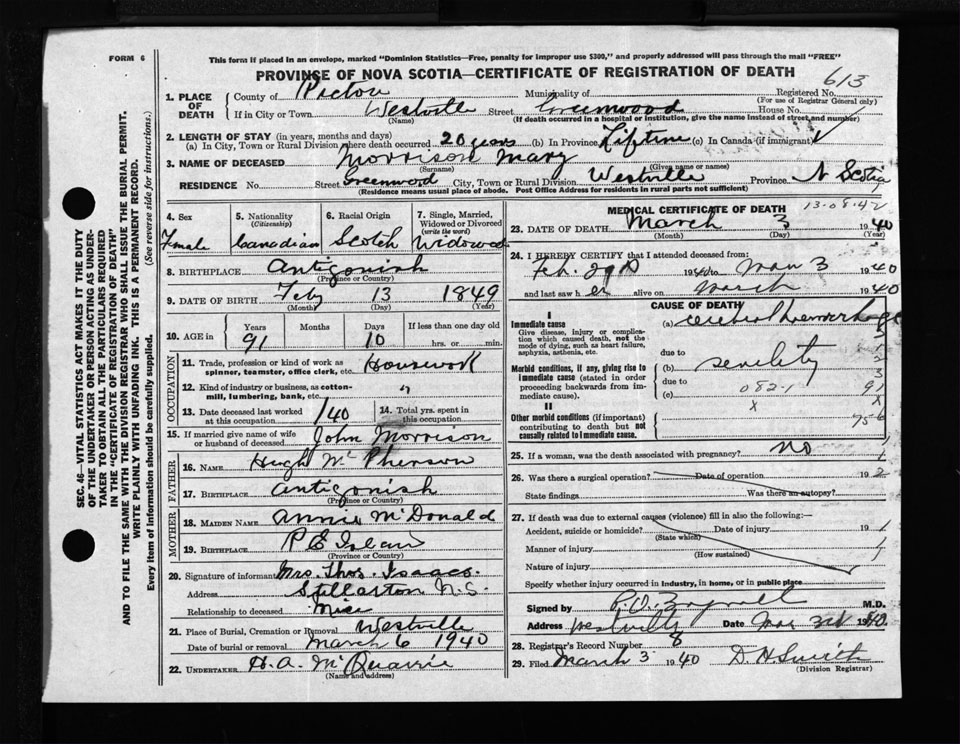 FORM 6
This form if placed in an envelope, marked "Dominion Statistics—Free, penalty for improper use $300," and properly addressed will pass through the mail "FREE"
PROVINCE OF NOVA SCOTIA—CERTIFICATE OF REGISTRATION OF DEATH
613
1. PLACE OF DEATH
County of Pictou Municipality of Registered No.
(For use of Registrar General only)
If in City or Town Westville Street Greenwood House No.
(Name) (If death occurred in a hospital or institution, give the name instead of street and number)
2. LENGTH OF STAY (in years, months and days)
(a) In City, Town or Rural Division where death occurred 20 years (b) In Province Lifetime (c) In Canada (if immigrant)
3. NAME OF DECEASED Morrison Mary
(Surname) (Given name or names)
RESIDENCE No. Street Greenwood City, Town or Rural Division Westville Province N Scotia
(Residence means usual place of abode. Post Office Address for residents in rural parts not sufficient)
4. Sex 5. Nationality (Citizenship) 6. Racial Origin 7. Single, Married, Widowed or Divorced (write the word)
Female Canadian Scotch Widowed
8. BIRTHPLACE Antigonish
(Province or Country)
9. DATE OF BIRTH Feby 13 1849
(Month) (Day) (Year)
10. AGE in Years Months Days If less than one day old
91 10 hrs. or min.
OCCUPATION
11. Trade, profession or kind of work as spinner, teamster, office clerk, etc. Housework
12. Kind of industry or business, as cotton-mill, lumbering, bank, etc. "
13. Date deceased last worked at this occupation 14. Total yrs. spent in this occupation
15. If married give name of wife or husband of deceased John Morrison
FATHER
16. NAME Hugh McPherson
17. BIRTHPLACE Antigonish
(Province or Country)
MOTHER
18. MAIDEN NAME Annie McDonald
19. BIRTHPLACE P E Island
(Province or Country)
20. Signature of informant Mrs. Thos. Isaacs.
Address Stellarton N.S.
Relationship to deceased Niece
21. Place of Burial, Cremation or Removal Westville
Date of burial or removal March 6 1940
22. UNDERTAKER H. A. McQuarrie
(Name and address)
MEDICAL CERTIFICATE OF DEATH 13-08-42
23. DATE OF DEATH March 3 1940
(Month) (Day) (Year)
24. I HEREBY CERTIFY that I attended deceased from:
Feb. 29th 1940 to Mar 3 1940
and last saw h er alive on March 1940
CAUSE OF DEATH
I
Immediate cause
Give disease, injury or complication which caused death, not the mode of dying, such as heart failure, asphyxia, asthenia, etc.
(a) cerebral haemorrhage
due to
Morbid conditions, if any, giving rise to immediate cause (stated in order proceeding backwards from immediate cause).
(b) senility
due to
(c) 082-1
91
x
II
Other morbid conditions (if important) contributing to death but not causally related to immediate cause.
x
75-6
25. If a woman, was the death associated with pregnancy? no
26. Was there a surgical operation? Date of operation 19
State findings Was there an autopsy?
27. If death was due to external causes (violence) fill in also the following:—
Accident, suicide or homicide? Date of injury 19
(State which)
Manner of injury
(How sustained)
Nature of injury
Specify whether injury occurred in industry, in home, or in public place
Signed by M.D.
Address Westville Date Mar 3rd 1940
28. Registrar's Record Number 8
29. Filed March 3 1940 D. H. Smith
(Division Registrar)
SEC. 46—VITAL STATISTICS ACT MAKES IT THE DUTY
OF THE UNDERTAKER OR PERSON ACTING AS UNDER-
TAKER TO OBTAIN ALL THE PARTICULARS REQUIRED
IN THE "CERTIFICATE OF REGISTRATION OF DEATH"
AND TO FILE THE SAME WITH THE DIVISION REGISTRAR WHO SHALL ISSUE THE BURIAL PERMIT.
WRITE PLAINLY WITH UNFADING INK. THIS IS A PERMANENT RECORD.
Every item of information should be carefully supplied. (See reverse side for instructions.)